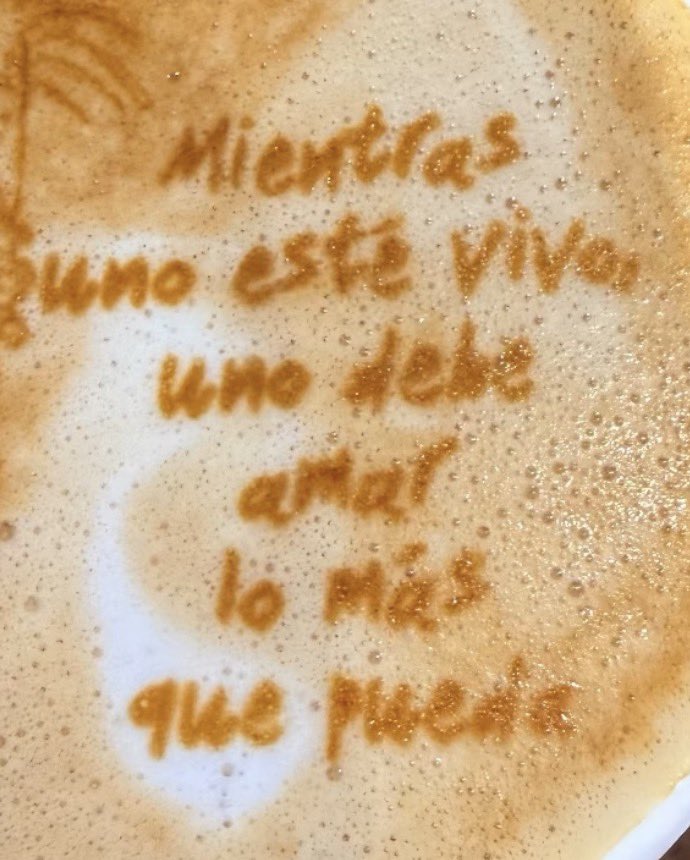 Mientras
uno esté vivo,
uno debe
amar
lo más
que pueda